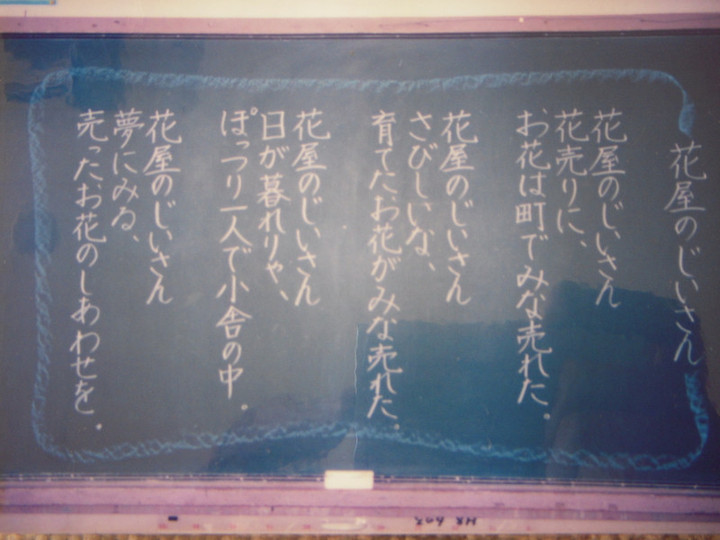 花屋のじいさん
花屋のじいさん
花売りに、
お花は町でみな売れた。
花屋のじいさん
さびしいな、
育てたお花がみな売れた。
花屋のじいさん
日が暮れりゃ、
ぽっつり一人で小舎の中。
花屋のじいさん
夢にみる、
売ったお花のしあわせを。